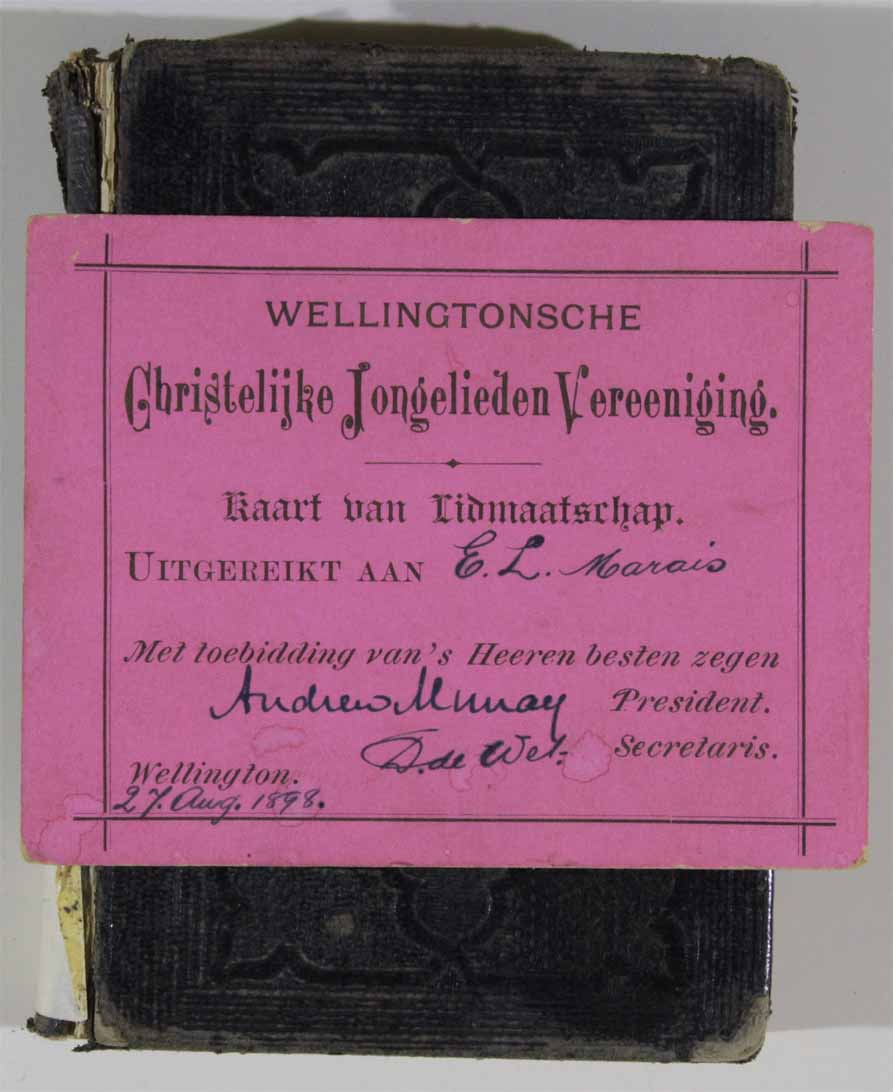 WELLINGTONSCHE
Christelijke Jongelieden Vereeniging.
Kaart van Lidmaatschap.
UITGEREIKT AAN E. L. Marais
Met toebidding van's Heeren besten zegen
Andrew Murray President.
D. de Wet. Secretaris.
Wellington.
27. Aug. 1898.